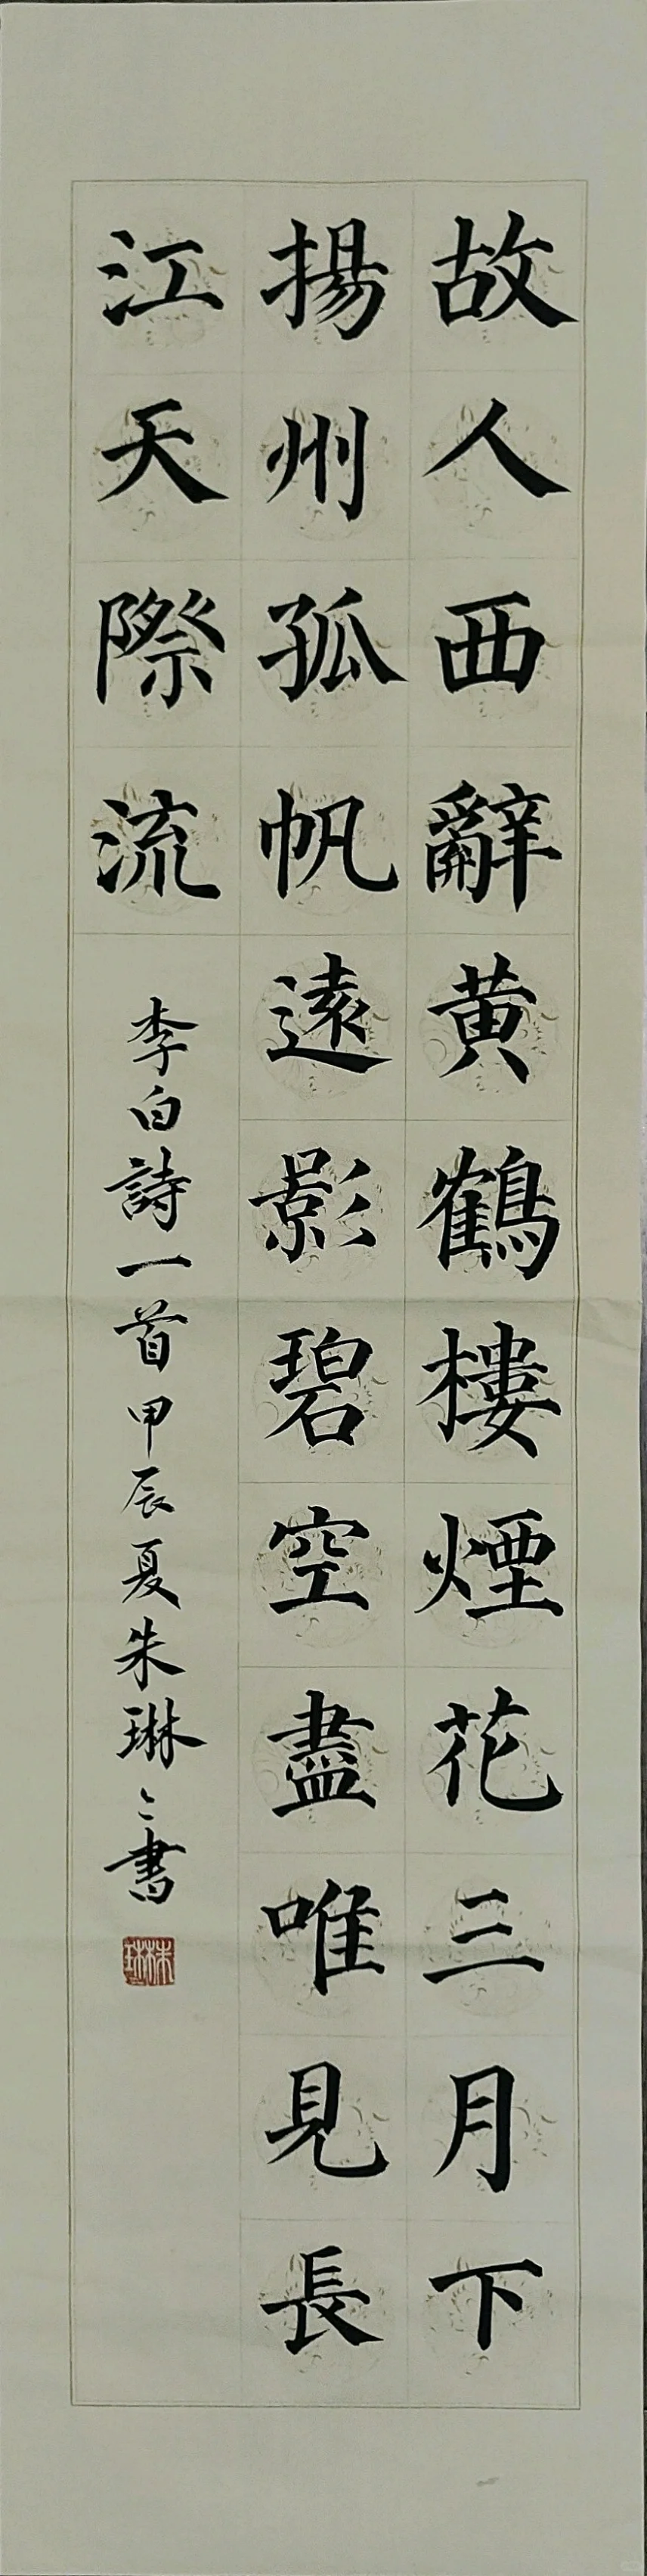 故人西辭黄鶴樓煙花三月下
揚州孤帆遠影碧空盡唯見長
江天際流
李白詩一首甲辰夏朱琳〻書
朱琳琳